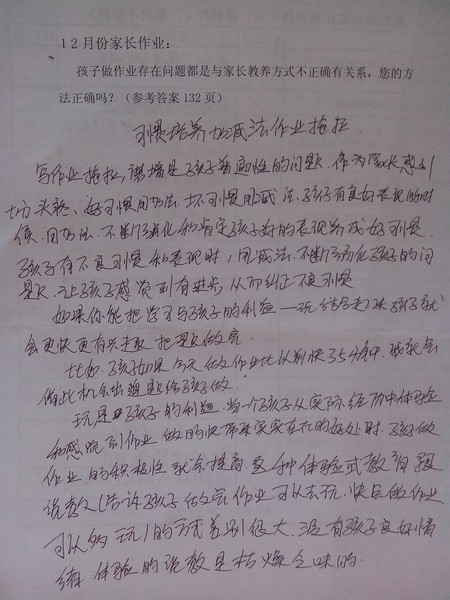 12月份家长作业:
孩子做作业存在问题都是与家长教养方式不正确有关系,您的方
法正确吗?(参考答案132页)
习惯培养加减法作业拖拉
写作业拖拉,磨增是孩子普遍性的问题,作为家长感到
头疼,好习惯用加法,坏习惯用减法,孩子有良好表现的时
候,用加法,不断强化和肯定孩子好的表现养成好习惯.
孩子有不良习惯和表现时,用减法.不断弱化孩子的问
题,让孩子感觉到有进步,从而纠正不良习惯
如果你能把学习与孩子的利益—玩结合起来孩子就
会更快更有兴趣把题做完
比如.孩子如果今天做作业比以前快了5分钟.我就会
借此机会出题给孩子做.
玩是孩子的利益.当一个孩子从实际经历中体验
和感觉到作业做的快带来实实在在的好处时.孩子做
作业的积极性就会提高.这种体验式教育跟
说教(告诉孩子做完作业可以去玩.快点做作业
可以多玩)的方式差别很大.没有孩子良好情
绪体验的说教是枯燥乏味的.